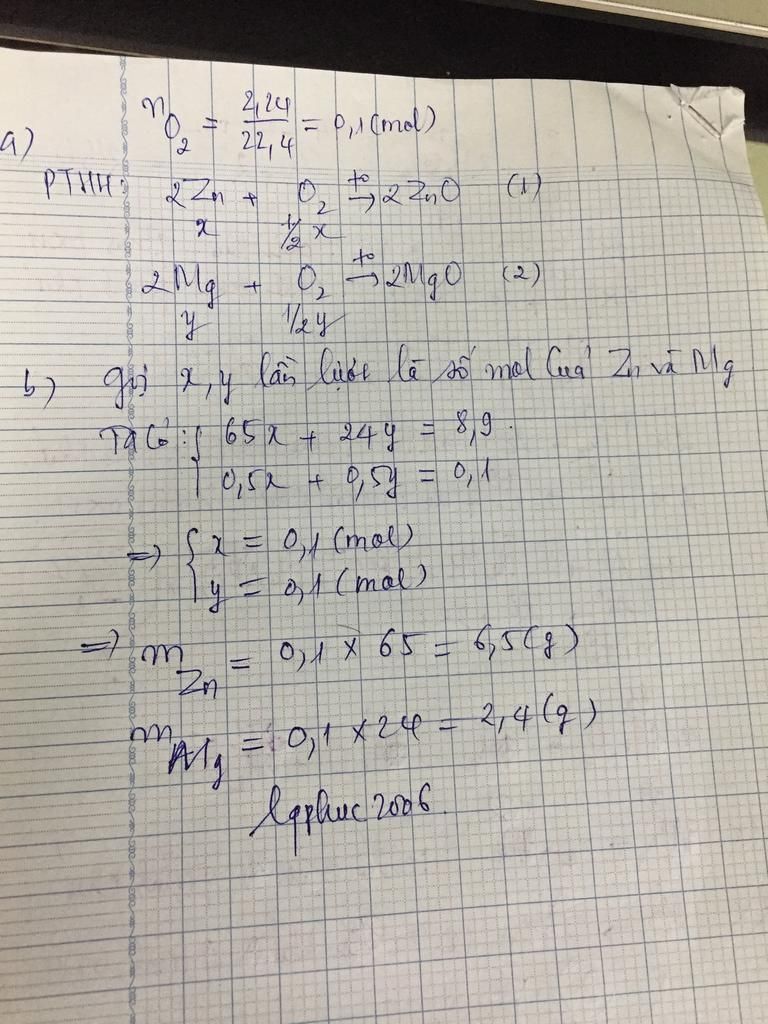 a) nO₂ = 2,24/22,4 = 0,1 (mol)
PTHH: 2Zn + O₂ →(t°) 2ZnO (1)
x 1/2 x
2Mg + O₂ →(t°) 2MgO (2)
y 1/2 y
b) gọi x, y lần lượt là số mol của Zn và Mg
Ta có: { 65x + 24y = 8,9.
0,5x + 0,5y = 0,1
=> { x = 0,1 (mol)
y = 0,1 (mol)
=> mZn = 0,1 × 65 = 6,5 (g)
mMg = 0,1 × 24 = 2,4 (g)
lqphuc2006.